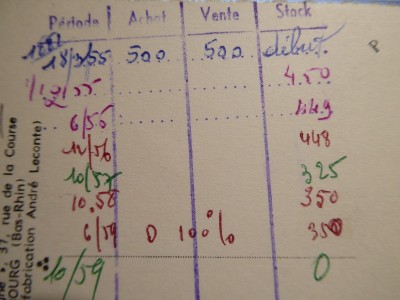 Période Achat Vente Stock
18/3/55 500 500 début
1/10/55 450
6/56 449
11/56 448
10/57 325
10.58 350
6/59 0 100% 350
10/59 0
37, rue de la Course
OURG (Bas-Rhin)
fabrication André Leconte)